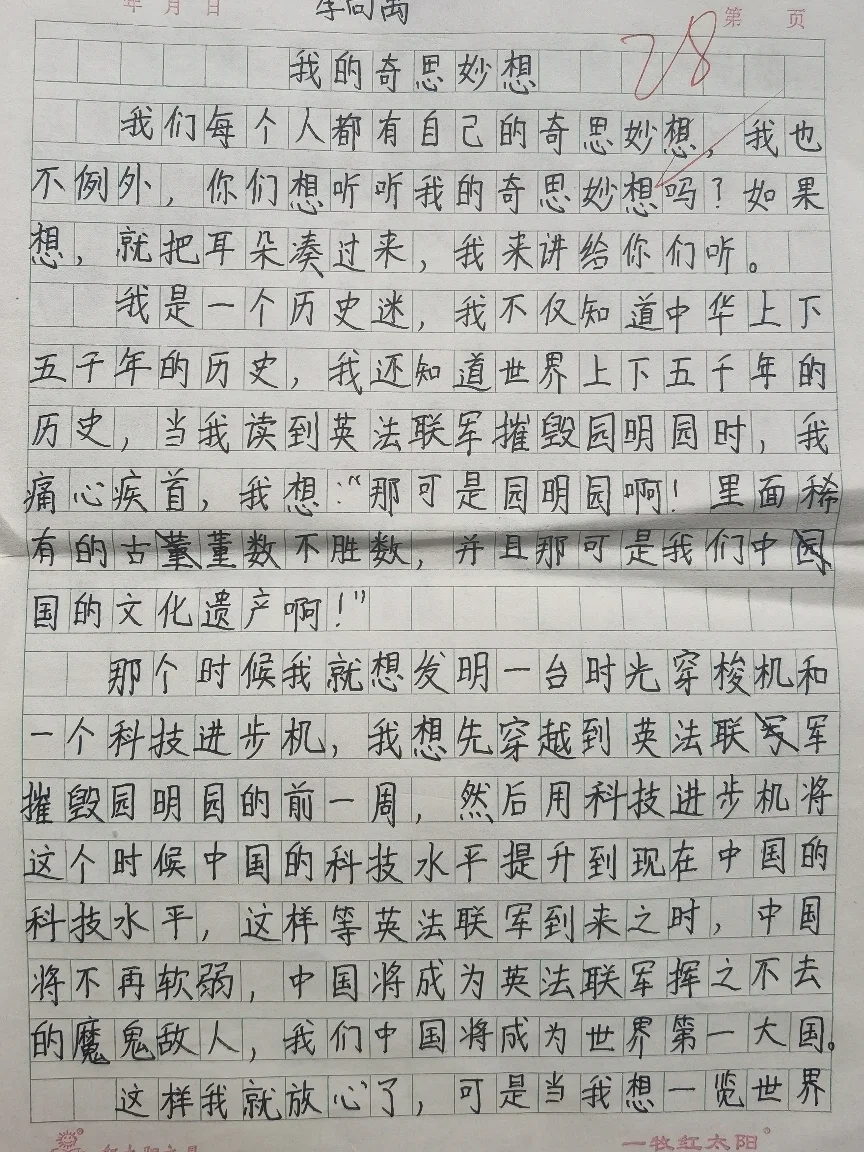 年 月 日 第 页
李向禹
28
我的奇思妙想
我们每个人都有自己的奇思妙想，我也
不例外，你们想听听我的奇思妙想吗？如果
想，就把耳朵凑过来，我来讲给你们听。
我是一个历史迷，我不仅知道中华上下
五千年的历史，我还知道世界上下五千年的
历史，当我读到英法联军摧毁园明园时，我
痛心疾首，我想：“那可是园明园啊！里面稀
有的古董数不胜数，并且那可是我们中
国的文化遗产啊！”
那个时候我就想发明一台时光穿梭机和
一个科技进步机，我想先穿越到英法联军
摧毁园明园的前一周，然后用科技进步机将
这个时候中国的科技水平提升到现在中国的
科技水平，这样等英法联军到来之时，中国
将不再软弱，中国将成为英法联军挥之不去
的魔鬼敌人，我们中国将成为世界第一大国。
这样我就放心了，可是当我想一览世界
一枚红太阳